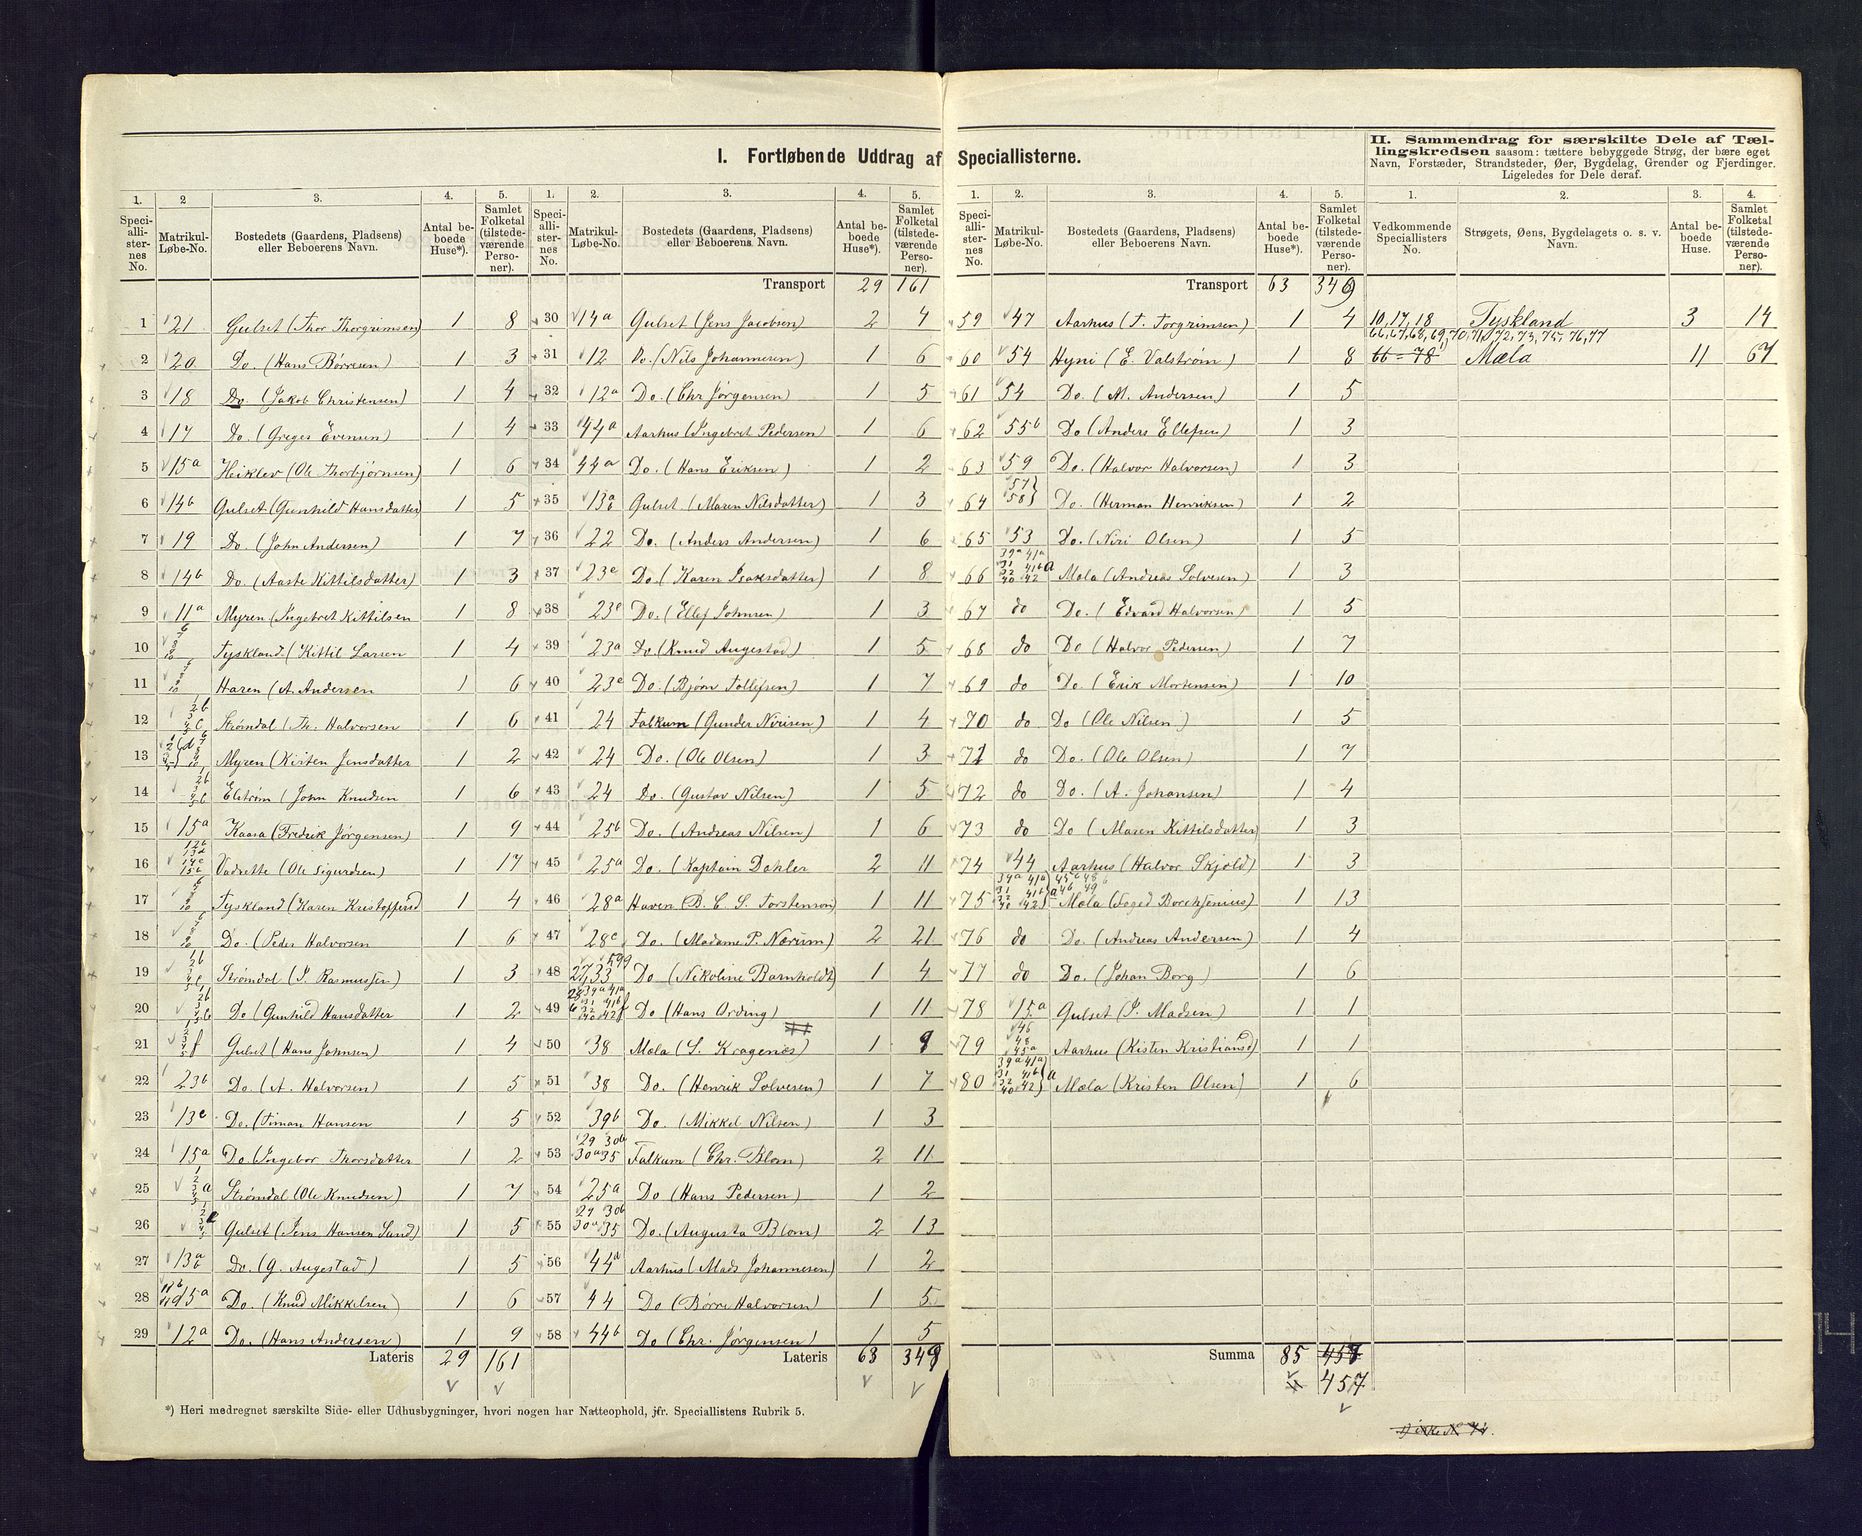 I. Fortløbende Uddrag af Speciallisterne.
II. Sammendrag for særskilte Dele af Tæl-
lingskredsen saasom: tættere bebyggede Strøg, der bære eget
Navn, Forstæder, Strandsteder, Øer, Bygdelag, Grender og Fjerdinger.
Ligeledes for Dele deraf.
1. 2 3. 4. 5.
Speci-allister-nes No. Matrikul-Løbe-No. Bostedets (Gaardens, Pladsens) eller Beboerens Navn. Antal be-boede Huse*). Samlet Folketal (tilstede-værende Perso-ner).
1 21 Gulset (Thor Thorgrimsen) 1 8
2 20 Do. (Hans Børresen) 1 3
3 18 Do. (Jakob Christensen) 1 4
4 17 Do. (Greges Evensen) 1 4
5 15a Heiklev (Ole Thorbjørnsen) 1 6
6 14b Gulset (Gunhild Hansdatter) 1 5
7 19 Do. (John Andersen) 1 7
8 14b Do. (Aaste Kittilsdatter) 1 3
9 11a Myren (Ingebret Kittilsen 1 8
10 Tyskland (Kittil Larsen 1 4
11 Haren (A. Andersen 1 6
12 Strømdal (Th. Halvorsen 1 6
13 Myren (Kirsten Jensdatter 1 2
14 Elstrøm (John Knudsen 1 6
15 15a Kaasa (Fredrik Jørgensen) 1 9
16 Vadrette (Ole Sigurdsen) 1 17
17 Tyskland (Karen Kristoffersd 1 4
18 Do. (Peder Halvorsen 1 6
19 Strømdal (I. Rasmussen) 1 3
20 Do (Gunhild Hansdatter 1 2
21 Gulset (Hans Johnsen) 1 4
22 23b Do. (A. Halvorsen) 1 5
23 13e Do. (Timan Hansen 1 5
24 15a Do. (Ingebor Thorsdatter 1 2
25 Strømdal (Ole Knudsen) 1 7
26 Gulset (Jens Hansen Sand) 1 5
27 13a b Do. (G. Augestad) 1 5
28 Do. (Knud Mikkelsen) 1 6
29 12a Do. (Hans Andersen) 1 9
Lateris 29 161
1. 2. 3. 4. 5.
Speci-alli-ster-nes No. Matrikul-Løbe-No. Bostedets (Gaardens, Pladsens) eller Beboerens Navn. Antal be-boede Huse*). Samlet Folketal (tilstede-værende Perso-ner).
Transport 29 161
30 14a Gulset (Jens Jacobsen) 2 4
31 12 Do. (Nils Johannesen) 1 6
32 12a Do. (Chr Jørgensen) 1 5
33 44a Aarhus (Ingebret Pedersen) 1 6
34 44a Do. (Hans Eriksen) 1 2
35 13a b Gulset (Maren Nilsdatter) 1 3
36 22 Do. (Anders Andersen) 1 6
37 23e Do. (Karen Isaksdatter) 1 8
38 23e Do. (Ellef Johnsen) 1 3
39 23a Do (Knud Augestad) 1 5
40 23e Do. (Bjørn Tollefsen) 1 7
41 24 Falkum (Gunder Nirisen) 1 4
42 24 Do. (Ole Olsen) 1 3
43 24 Do. (Gustav Nilsen) 1 5
44 25b Do. (Andreas Nilsen) 1 6
45 25a Do. (Kaptain Dahler 2 11
46 28a Haven (B. C. S. Torstenson) 1 11
47 28c Do. (Madame P. Nærum) 2 21
48 27,33 Do (Nikoline Barnholdt) 1 4
49 Do (Hans Ording) 1 11
50 38 Mæla (S. Kragenes) 1 9
51 38 Do. (Henrik Solvesen) 1 7
52 39b Do. (Mikkel Nilsen) 1 3
53 29 30b 30a 35 Falkum (Chr. Blom) 2 11
54 25a Do (Hans Pedersen) 1 2
55 29 30b 30a 35 Do. (Augusta Blom) 2 13
56 44d Aarhus (Mads Johannesen) 1 2
57 44 Do (Børre Halvorsen) 1 5
58 44b Do (Chr. Jørgensen) 1 5
Lateris 63 349
1. 2. 3. 4. 5.
Speci-alli-ster-nes No. Matrikul-Løbe-No. Bostedets (Gaardens, Pladsens) eller Beboerens Navn. Antal be-boede Huse*). Samlet Folketal (tilstede-værende Perso-ner).
Transport 63 349
59 47 Aarhus (T. Torgrimsen) 1 4
60 54 Hyni (E. Valstrøm) 1 8
61 54 Do. (M. Andersen) 1 5
62 55b Do (Anders Ellefsen) 1 3
63 59 Do. (Halvor Halvorsen) 1 3
64 57 58 Do. (Herman Henriksen) 1 2
65 53 Do. (Niri Olsen) 1 5
66 39a 41a 31 41b 32 40 42 a Mæla (Andreas Solvesen) 1 3
67 do Do. (Edvard Halvorsen) 1 5
68 do Do (Halvor Pedersen) 1 7
69 do Do. (Erik Mortensen) 1 10
70 do Do (Ole Nilsen) 1 5
71 do Do. (Ole Olsen) 1 7
72 do Do. (A. Johansen) 1 4
73 do Do (Maren Kittilsdatter) 1 3
74 44 Aarhus (Halvor Skjold) 1 3
75 Mæla (Foged Borchsenius) 1 13
76 do Do. (Andreas Andersen) 1 4
77 do Do. (Johan Borg) 1 6
78 15a Gulset (I. Madsen) 1 1
79 46 48 45a Aarhus (Kisten Kristiansd) 1 1
80 39a 41a 31 41b 32 40 42 a Mæla (Kristen Olsen) 1 6
Summa 85 458
457
1. 2. 3. 4.
Vedkommende Speciallisters No. Strøgets, Øens, Bygdelagets o. s. v. Navn. Antal be-boede Huse. Samlet Folketal (tilstede-værende Personer).
10, 17, 18 Tyskland 3 14
66, 67, 68, 69, 70, 71, 72, 73, 75, 76, 77
66 - 78 Mæla 11 67
*) Heri medregnet særskilte Side- eller Udhusbygninger, hvori nogen har Natteophold, jfr. Speciallistens Rubrik 5.